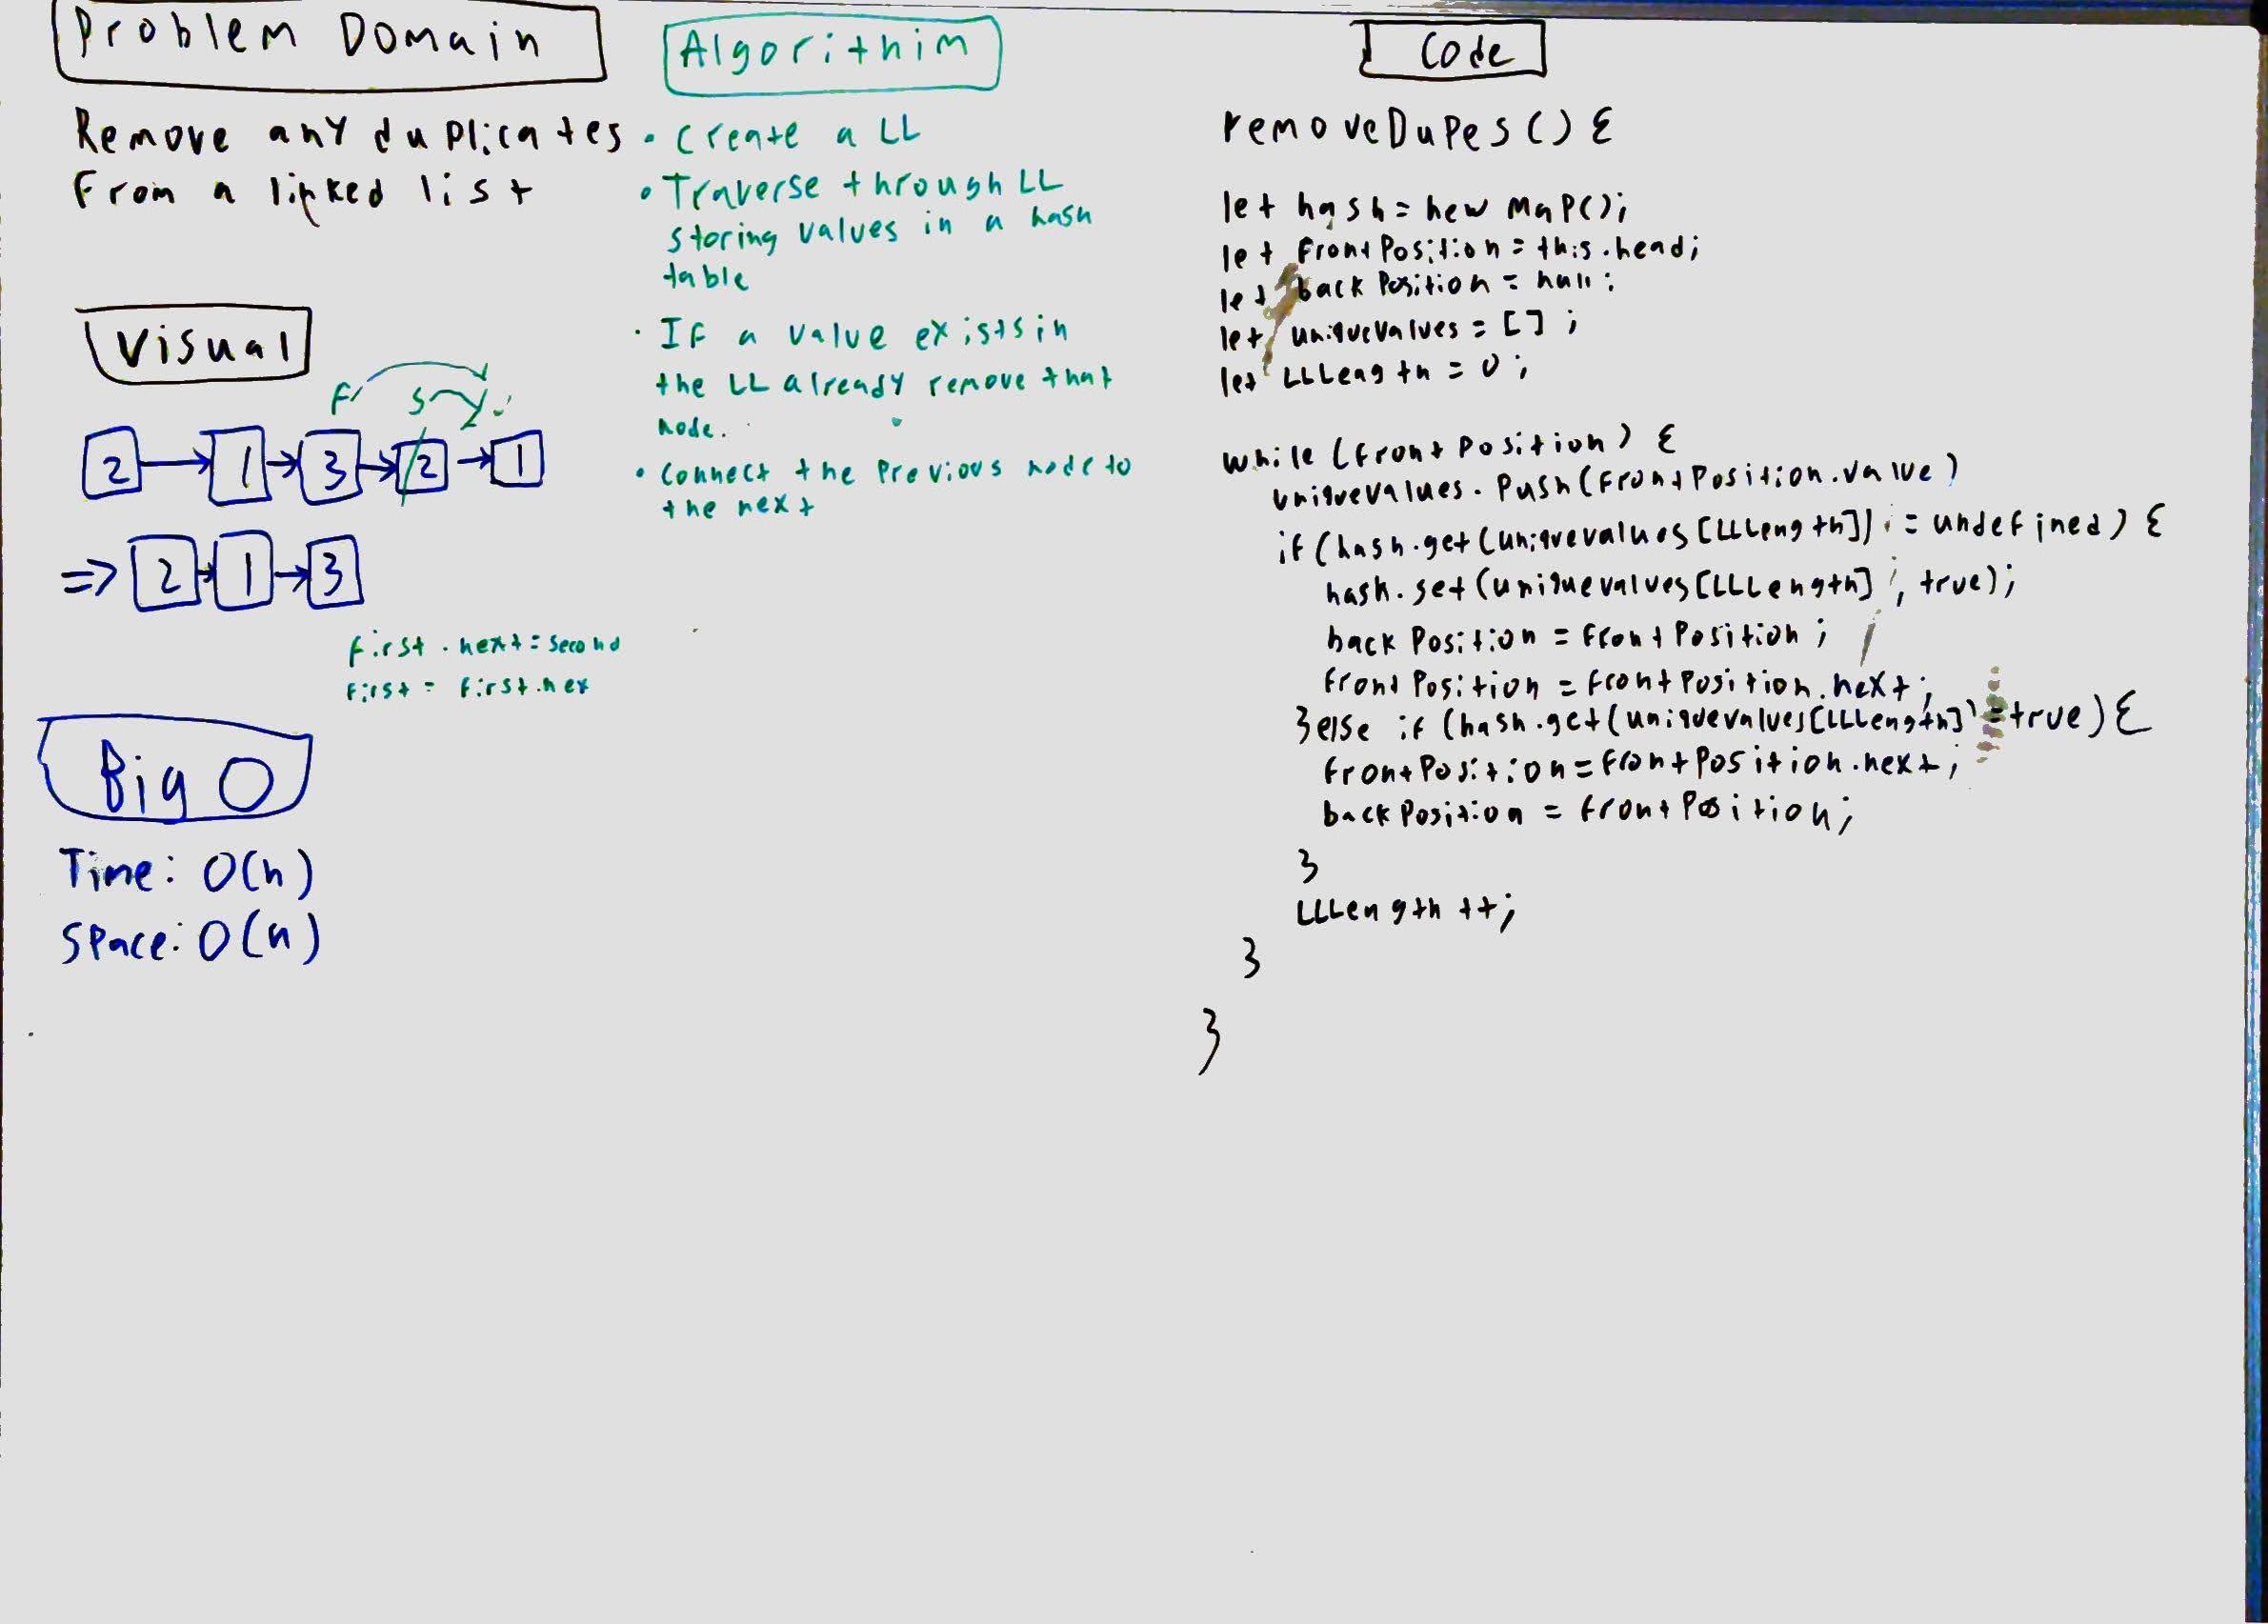 Problem Domain
Remove any duplicates
From a linked list
Visual
F S
2 1 3 2 1
=> 2 1 3
first.next = second
first = first.nex
Big O
Time: O(n)
Space: O(n)
Algorithim
• Create a LL
• Traverse through LL
storing values in a hash
table
• If a value exists in
the LL already remove that
node.
• Connect the previous node to
the next
Code
removeDupes() {
let hash = new Map();
let frontPosition = this.head;
let backPosition = null;
let uniquevalues = [];
let LLLength = 0;
while (frontPosition) {
uniquevalues.push(frontPosition.value)
if (hash.get(uniquevalues[LLLength]) == undefined) {
hash.set(uniquevalues[LLLength], true);
backPosition = frontPosition;
frontPosition = frontPosition.next;
}else if (hash.get(uniquevalues[LLLength]) = true) {
frontPosition = frontPosition.next;
backPosition = frontPosition;
}
LLLength++;
}
}